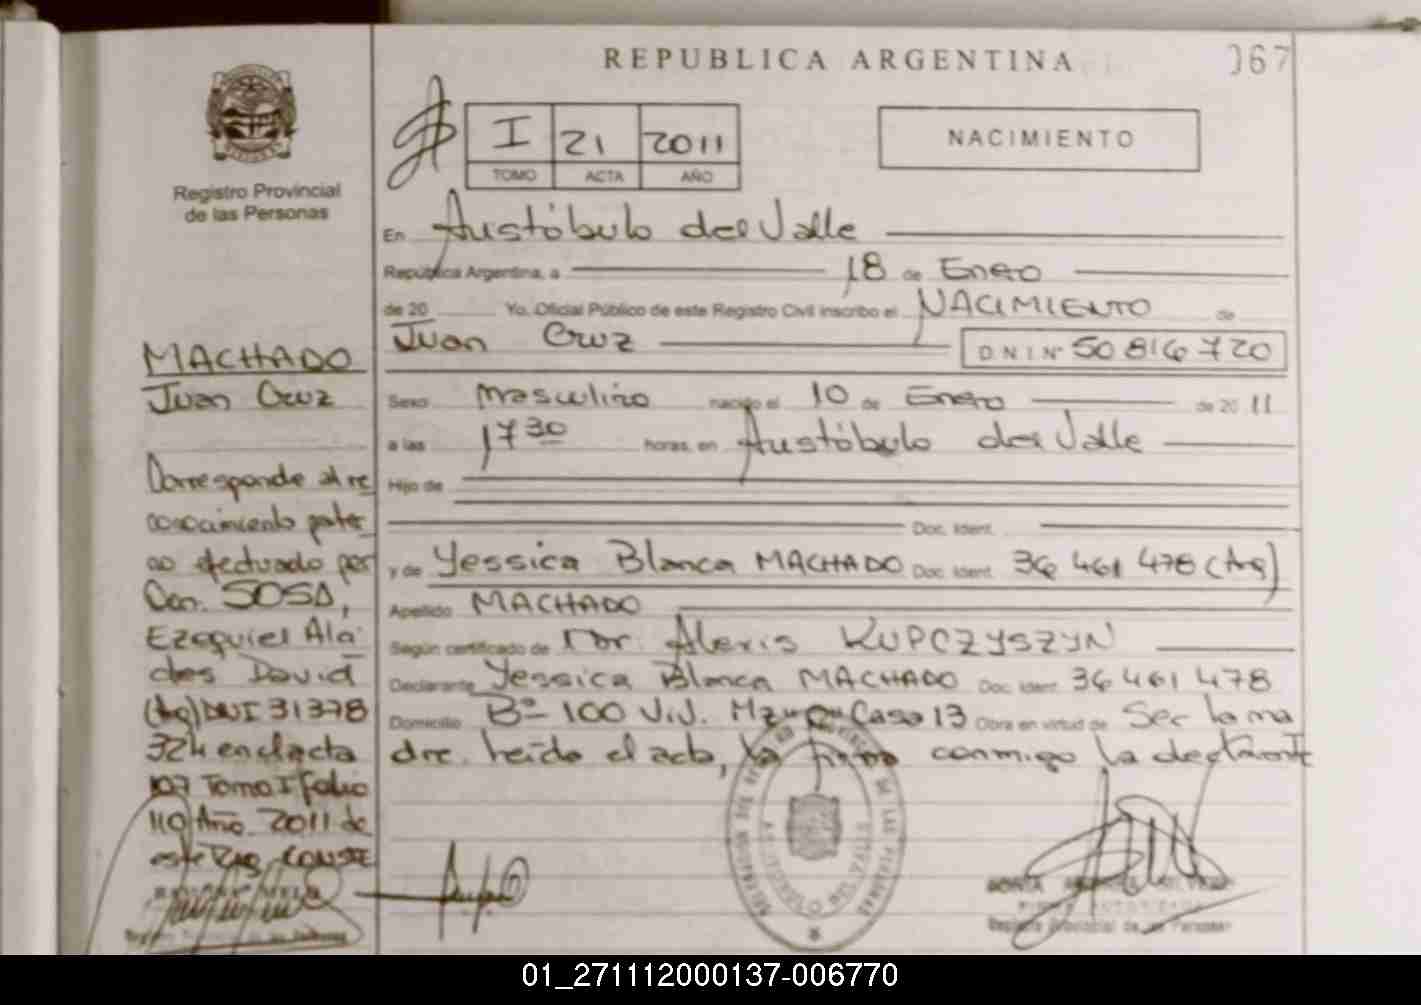 REPUBLICA ARGENTINA
067
Registro Provincial
de las Personas
I 21 2011
TOMO ACTA AÑO
NACIMIENTO
En Aristóbulo del Valle
República Argentina, a 18 de Enero
de 20 Yo, Oficial Público de este Registro Civil inscribo el NACIMIENTO de
Juan Cruz D.N.I. Nº 50 816 720
Sexo masculino nacido el 10 de Enero de 20 11
a las 17 30 horas, en Aristóbulo del Valle
Hijo de
Doc. Ident.
y de Yessica Blanca MACHADO Doc. Ident. 36 461 478 (Arg)
Apellido MACHADO
Según certificado de Dr. Alexis KUPCZYSZYN
Declarante Yessica Blanca MACHADO Doc. Ident. 36 461 478
Domicilio Bº 100 Viv. Mz Casa 13 Obra en virtud de Ser la ma
dre. Leído el acta, la firma conmigo la declarante
MACHADO
Juan Cruz
Corresponde al re
conocimiento pater
no efectuado por
Don. SOSA,
Ezequiel
David
(Arg) DNI 31378
324 en el acta
107 Tomo I folio
110 Año 2011 de
este Reg. CONSTE
DE LAS PERSONAS
DEL VALLE
Registro Provincial de las Personas
01_271112000137-006770